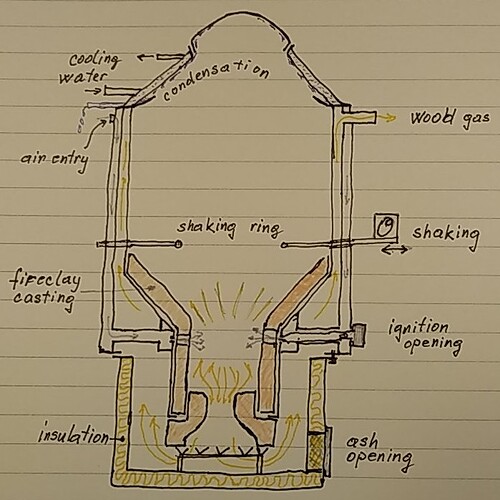 cooling
water
condensation
air entry
wood gas
shaking ring
shaking
fireclay
casting
ignition
opening
insulation
ash
opening